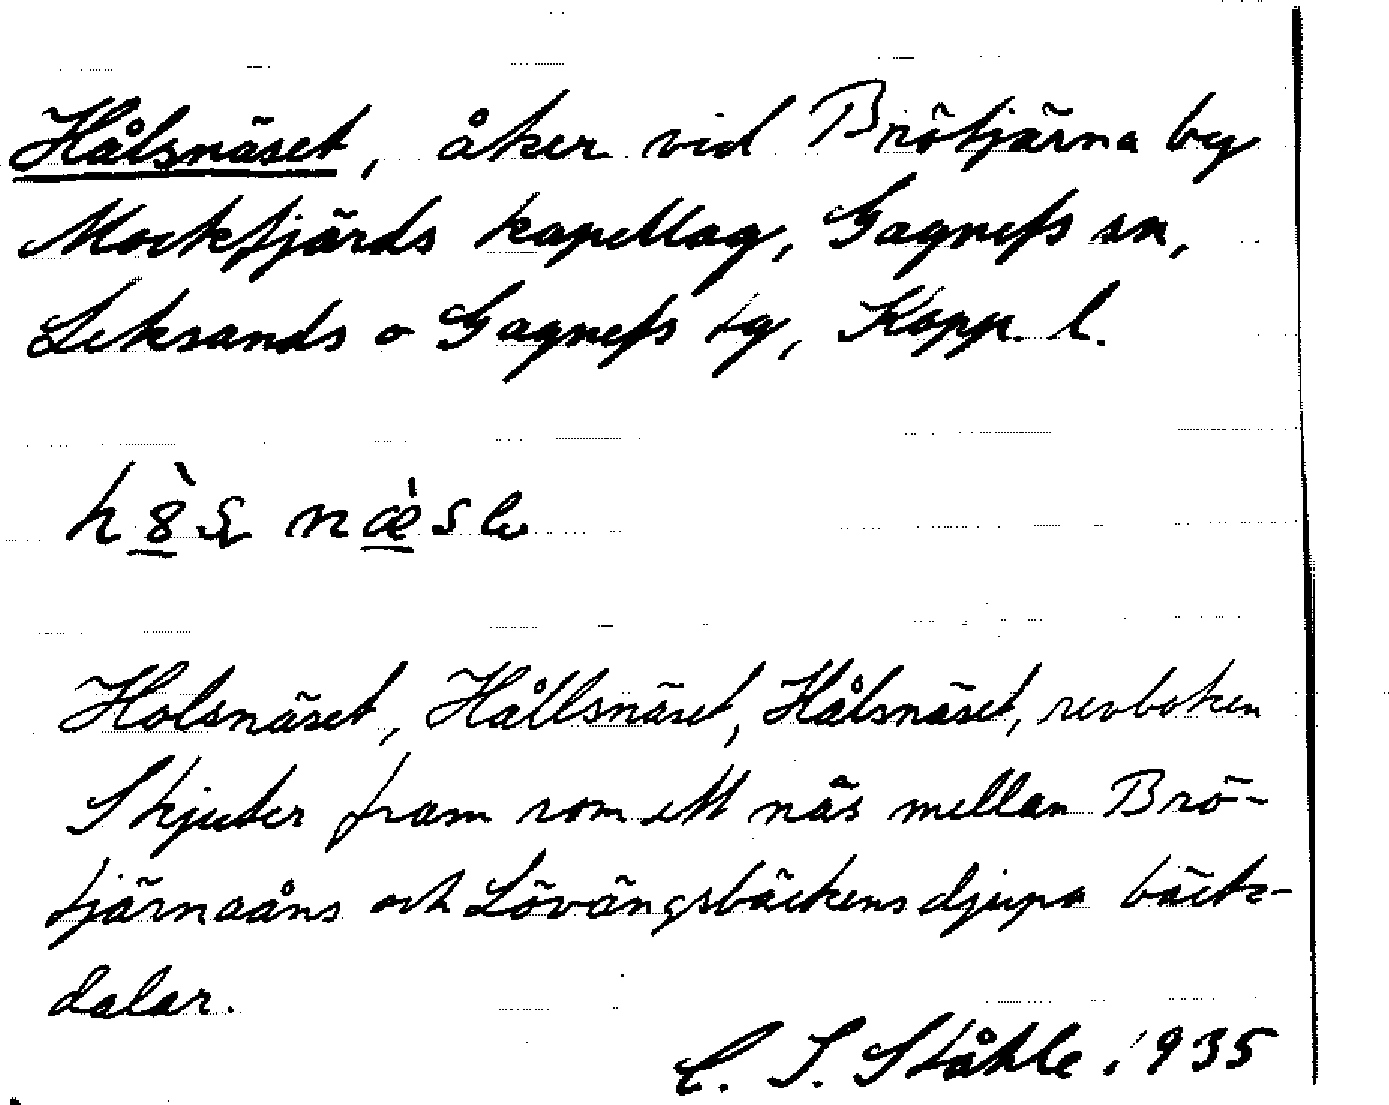 Hålsnäset, åker vid Brötjärna by
Mockfjärds kapellag, Gagnefs sn,
Leksands o Gagnefs tg, Kopp. l.
Holsnäset, Hållsnäset, Hålsnäset, revboken
Skjuter fram som ett näs mellan Brö-
tjärnaåns och Lövängsbäckens djupa bäck-
dalar.
C. I. Ståhle. 1935